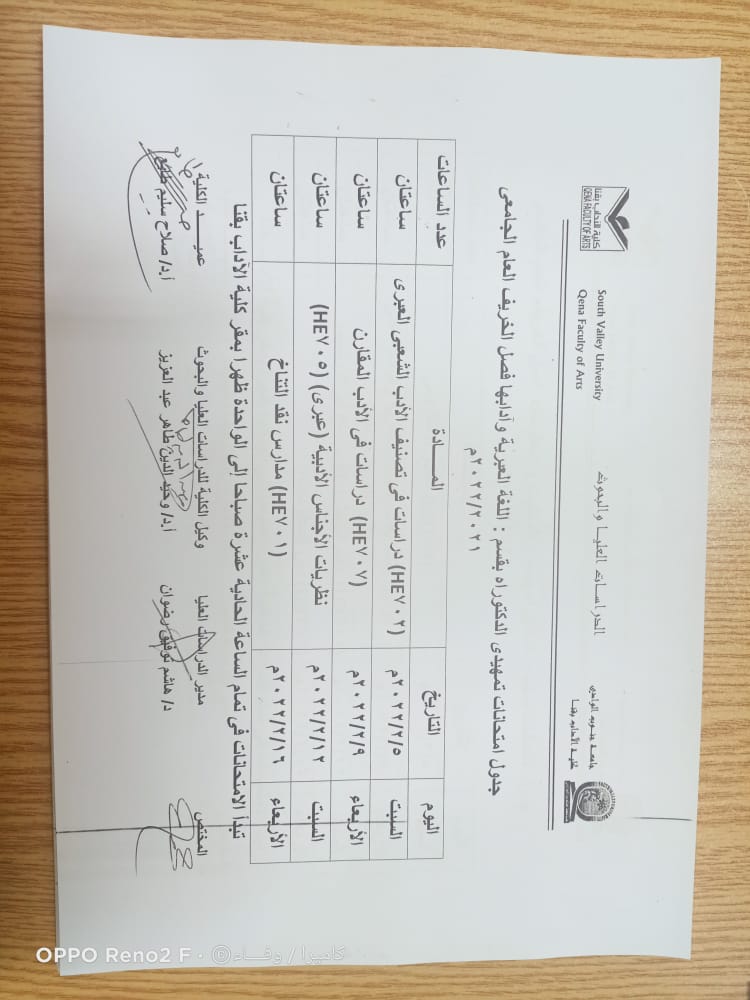 جامعة جنوب الوادي
كلية الآداب بقنا
الدراسات العليا والبحوث
South Valley University
Qena Faculty of Arts
كلية الآداب بقنا
QENA FACULTY OF ARTS
جدول امتحانات تمهيدى الدكتوراه بقسم : اللغة العبرية وآدابها فصل الخريف العام الجامعى
٢٠٢٢/٢٠٢١م
اليوم التاريخ المــــادة عدد الساعات
السبت ٢٠٢٢/٢/٥م (HE٧٠٢) دراسات فى تصنيف الأدب الشعبى العبرى ساعتان
الأربعاء ٢٠٢٢/٢/٩م (HE٧٠٧) دراسات فى الأدب المقارن ساعتان
السبت ٢٠٢٢/٢/١٢م نظريات الأجناس الأدبية (عبرى) (HE٧٠٥) ساعتان
الأربعاء ٢٠٢٢/٢/١٦م (HE٧٠١) مدارس نقد التناخ ساعتان
تبدأ الامتحانات فى تمام الساعة الحادية عشرة صباحا إلى الواحدة ظهرا بمقر كلية الآداب بقنا
المختص مدير الدراسات العليا وكيل الكلية للدراسات العليا والبحوث عميــد الكلية
د/ هاشم توفيق رضوان أ.د/ وحيد الدين طاهر عبد العزيز أ.د/ صلاح سليم طايع
OPPO Reno2 F · ©كاميرا / وفـــاء